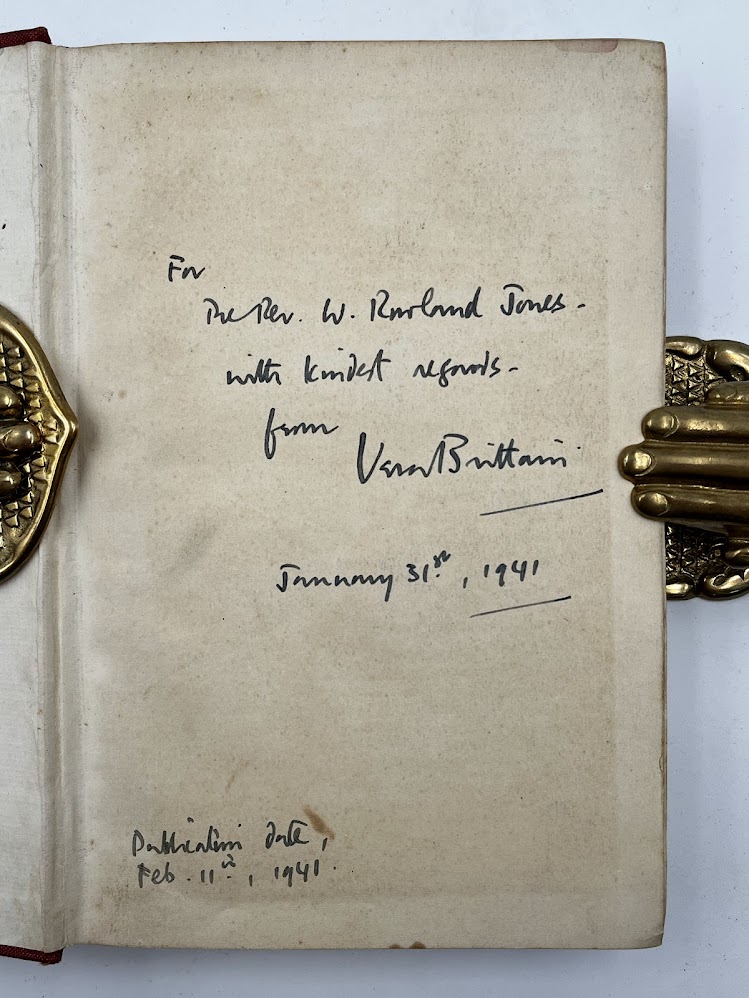 For
The Rev. W. Rowland Jones -
with kindest regards -
from
Vera Brittain
January 31st, 1941
Publication date,
Feb. 11th, 1941.